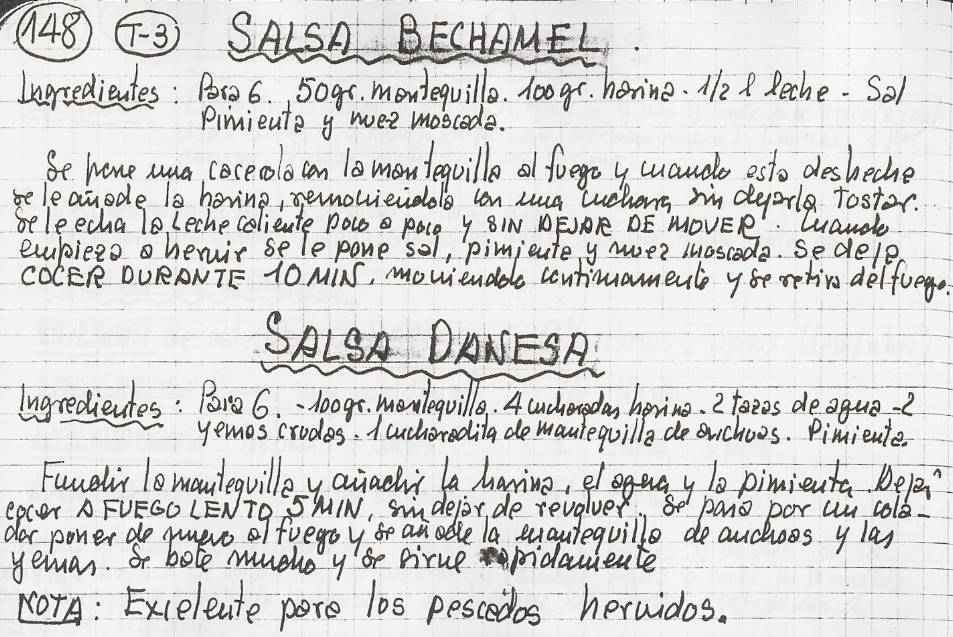 148 T-3 SALSA BECHAMEL.
Ingredientes: Para 6. 50gr. mantequilla. 100gr. harina. 1/2 l leche - Sal
Pimienta y nuez moscada.
Se pone una cacerola con la mantequilla al fuego y cuando esta deshecha
se le añade la harina, removiendola con una cuchara, sin dejarla Tostar.
Se le echa la leche caliente poco a poco y SIN DEJAR DE MOVER. Cuando
empieza a hervir se le pone sal, pimienta y nuez moscada. Se deja
COCER DURANTE 10 MIN, moviendolo continuamente y se retira del fuego.
SALSA DANESA
Ingredientes: Para 6. - 100gr. mantequilla. 4 cucharadas harina. 2 tazas de agua - 2
yemas crudas. 1 cucharadita de mantequilla de anchoas. Pimienta.
Fundir la mantequilla y añadir la harina, el agua y la pimienta. Dejar
cocer A FUEGO LENTO 5 MIN, sin dejar de revolver. Se pasa por un cola-
dor poner de nuevo al fuego y se añade la mantequilla de anchoas y las
yemas. Se bate mucho y se sirve rapidamente
NOTA: Excelente para los pescados hervidos.